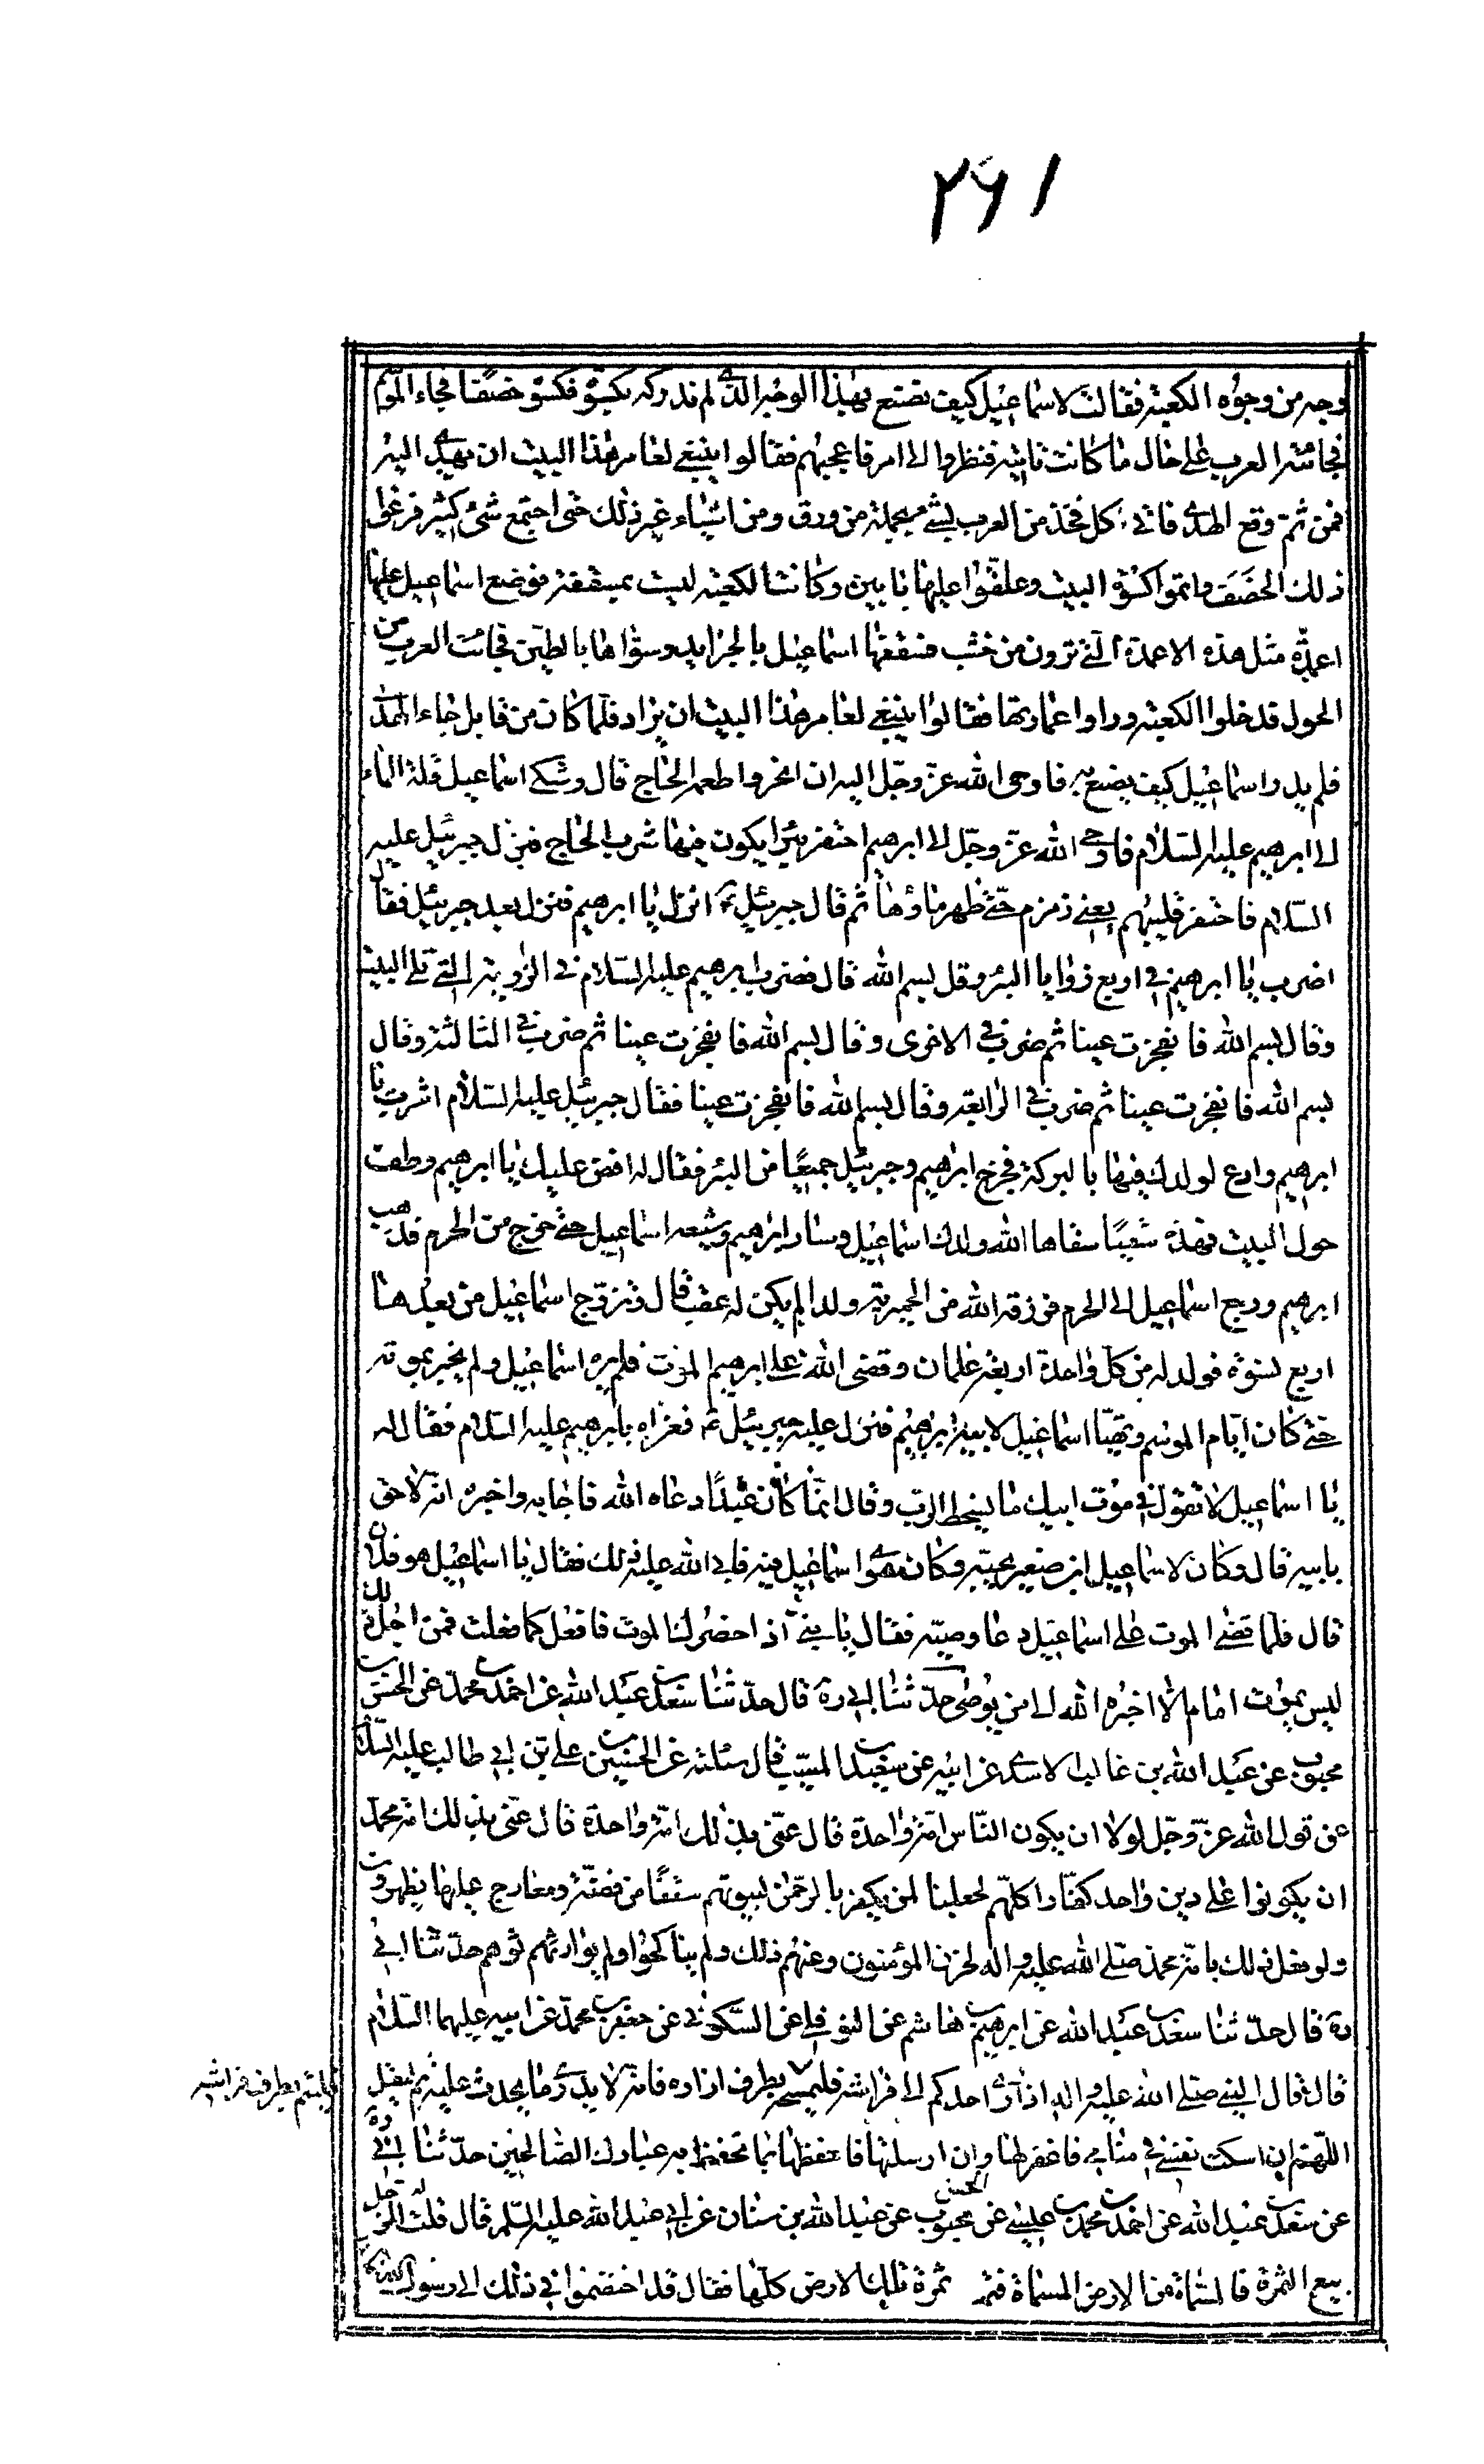 ٢٦١
وجه من وجوه الكعبة فقالت لاسماعيل كيف نصنع بهذا الوجه الذي لم ندركه بكسوة فكسوه خصفا فجاء الموسم
فجائته العرب على حال ما كانت تاتيه فنظروا الى امر فاعجبهم فقالوا ينبغي لعامر هذا البيت ان يهدى اليه
فمن ثم وقع الهدى فاتى كل فخذ من العرب بشئ يحمله من ورق ومن اشياء غير ذلك حتى اجتمع شئ كثير فنزعوا
ذلك الخصف واتموا كسوة البيت وعلقوا عليها بابين وكانت الكعبة ليست بمسقفة فوضع اسماعيل عليها
اعمدة مثل هذه الاعمدة التي ترون من خشب فسقفها اسماعيل بالجرايد وسواها بالطين فجائت العرب من
الحول فدخلوا الكعبة وراوا عمارتها فقالوا ينبغي لعامر هذا البيت ان يزاد فلما كان من قابل جاءه الهدى
فلم يدر اسماعيل كيف يصنع به فاوحى الله عز وجل اليه ان انحره واطعمه الحاج قال وشكى اسماعيل قلة الماء
الى ابرهيم عليه السلام فاوحى الله عز وجل الى ابرهيم احتفر بئرا يكون فيها شرب الحاج فنزل جبرئيل عليه
السلام فاحتفر قليبهم يعني زمزم حتى ظهر ماؤها ثم قال جبرئيل ع انزل يا ابرهيم فنزل بعد جبرئيل فقال
اضرب يا ابرهيم في اربع زوايا البئر وقل بسم الله قال فضرب ابرهيم عليه السلام في الزاوية التي تلى البيت
وقال بسم الله فانفجرت عينا ثم ضرب في الاخرى وقال بسم الله فانفجرت عينا ثم ضرب في الثالثة وقال
بسم الله فانفجرت عينا ثم ضرب في الرابعة وقال بسم الله فانفجرت عينا فقال جبرئيل عليه السلام اشرب يا
ابرهيم وادع لولدك فيها بالبركة فخرج ابراهيم وجبرئيل جميعا من البئر فقال له افض عليك يا ابرهيم وطف
حول البيت فهذه سقيا سقاها الله ولدك اسماعيل وسار ابرهيم وشيعه اسماعيل حتى خرج من الحرم فذهب
ابرهيم ورجع اسماعيل الى الحرم فرزقه الله من الحميرية ولدا لم يكن له عقب قال وتزوج اسماعيل من بعدها
اربع نسوة فولد له من كل واحدة اربعة غلمان وقضى الله على ابرهيم الموت فلم يره اسماعيل ولم يخبر بموته
حتى كان ايام الموسم وتهيا اسماعيل لابيه ابرهيم فنزل عليه جبرئيل ع فعزاه بابرهيم عليه السلام فقال له
يا اسماعيل لا تقول في موت ابيك ما يسخط الرب وقال انما كان عبدا دعاه الله فاجابه واخبره انه لاحق
بابيه قال وكان لاسماعيل ابن صغير يحبه وكان هوى اسماعيل فيه فابى الله عليه ذلك فقال يا اسماعيل هو فلان
قال فلما قضى الموت على اسماعيل دعا وصيه فقال يا بني اذا حضرك الموت فافعل كما فعلت فمن اجل ذلك
ليس يموت امام الا اخبره الله الى من يوصى حدثنا ابي ره قال حدثنا سعد بن عبد الله عن احمد بن محمد عن الحسن بن
محبوب عن عبد الله بن غالب الاسدي عن ابيه عن سعيد بن المسيب قال سئلته عن الحسين بن علي بن ابي طالب عليه السلام
عن قول الله عز وجل لولا ان يكون الناس امة واحدة قال عنى بذلك امة واحدة قال عنى بذلك امة محمد
ان يكونوا على دين واحد كفارا كلهم لجعلنا لمن يكفر بالرحمن لبيوتهم سقفا من فضة ومعارج عليها يظهرون
ولو فعل ذلك بامة محمد صلى الله عليه واله لحزن المؤمنون وغمهم ذلك ولم يناكحوا ولم يوارثهم ثوهم حدثنا ابي
ره قال حدثنا سعد بن عبد الله عن ابرهيم بن هاشم عن النوفلي عن السكوني عن جعفر بن محمد عن ابيه عليهما السلام
قال قال النبي صلى الله عليه واله اذا اوى احدكم الى فراشه فليمسحه بطرف ازاره فانه لا يدري ما يحدث عليه ثم ليقل
بطرف فراشه
اللهم ان امسكت نفسي في منامي فاغفر لها وان ارسلتها فاحفظها بما تحفظ به عبادك الصالحين حدثنا ابي ره
عن سعد بن عبد الله عن احمد بن محمد بن عيسى عن الحسن بن محبوب عن عبد الله بن سنان عن ابي عبد الله عليه السلم قال قلت له الرجل
يبيع الثمرة المسماة من الارض المسماة ثمرة تلك الارض كلها فقال قد اختصموا في ذلك الى رسول الله